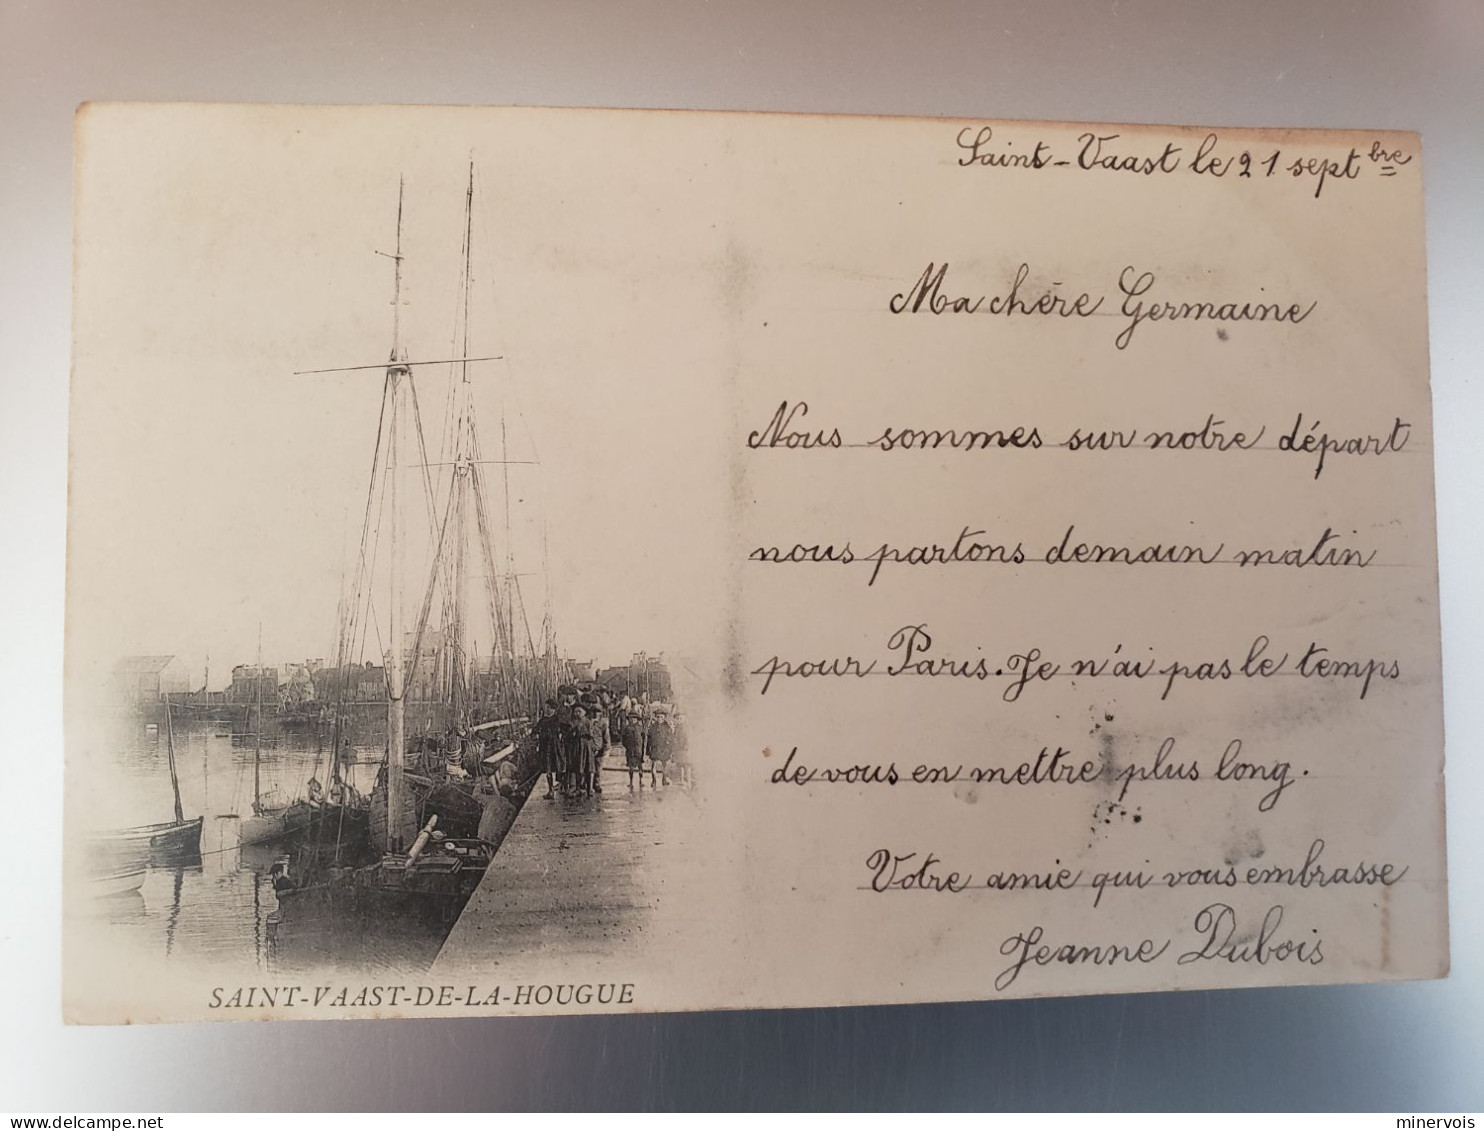 Saint-Vaast le 21 sept bre
Ma chère Germaine
Nous sommes sur notre départ
nous partons demain matin
pour Paris. Je n'ai pas le temps
de vous en mettre plus long.
Votre amie qui vous embrasse
Jeanne Dubois
SAINT-VAAST-DE-LA-HOUGUE
minervois